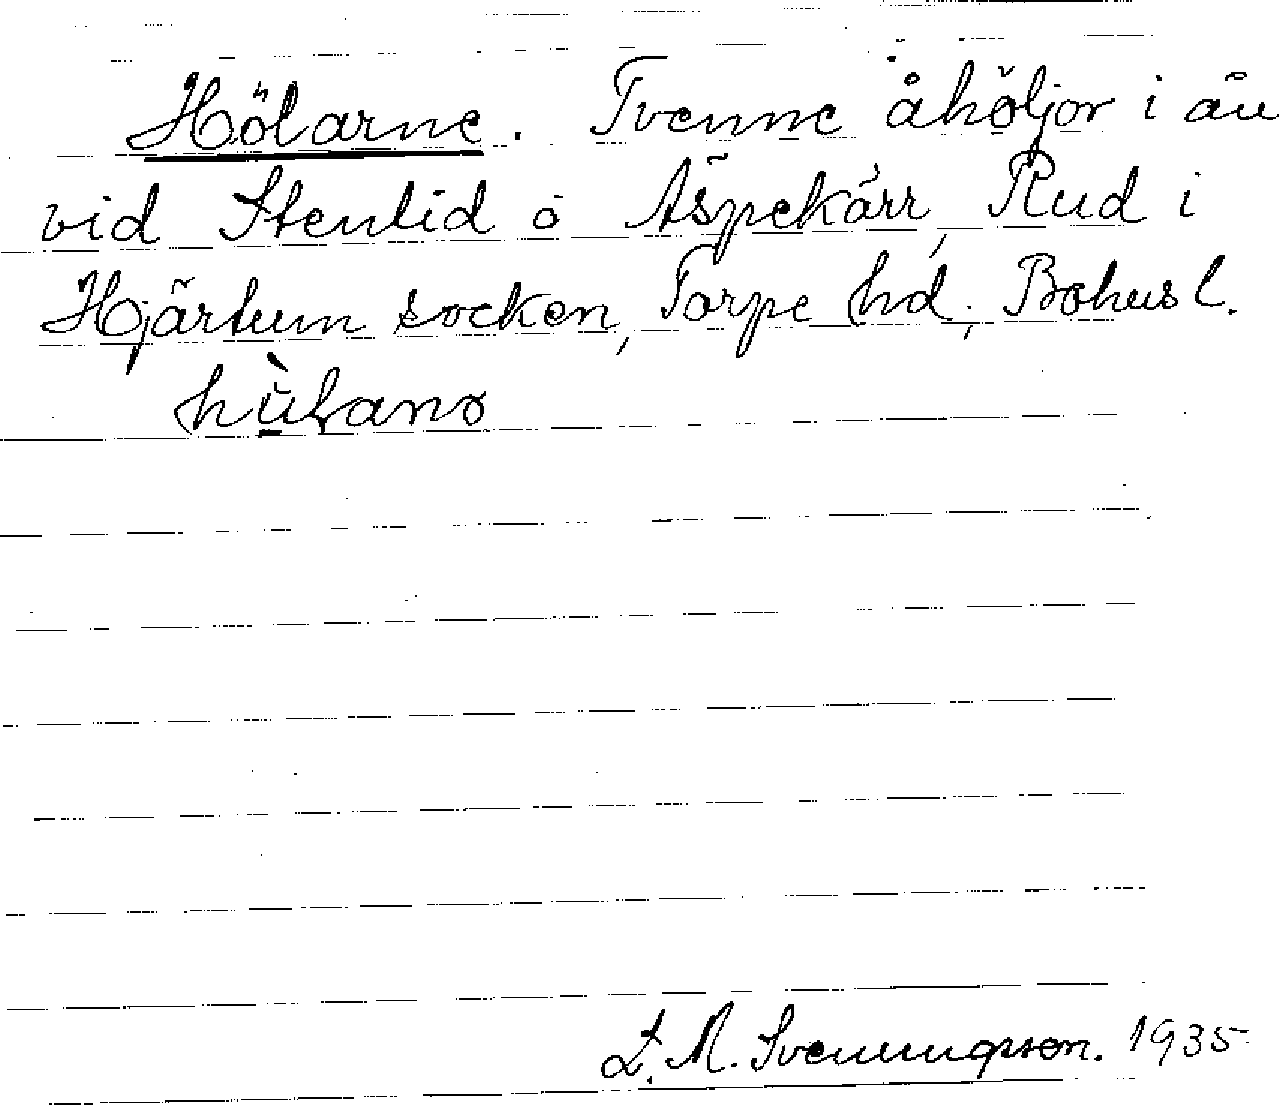 Hölarne. Tvenne åhöljor i ån
vid Stenlid o Äspekärr, Rud i
Hjärtum socken, Torpe hd; Bohusl.
L. M. Svenungsson. 1935